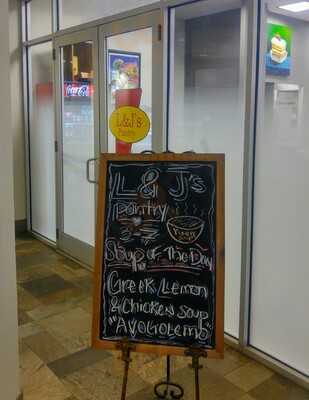 Coca-Cola
L&J's
Pantry
L & J's
Pantry
Soup of The Day
Greek Lemon
& Chicken Soup
"AVOGOLEMO"